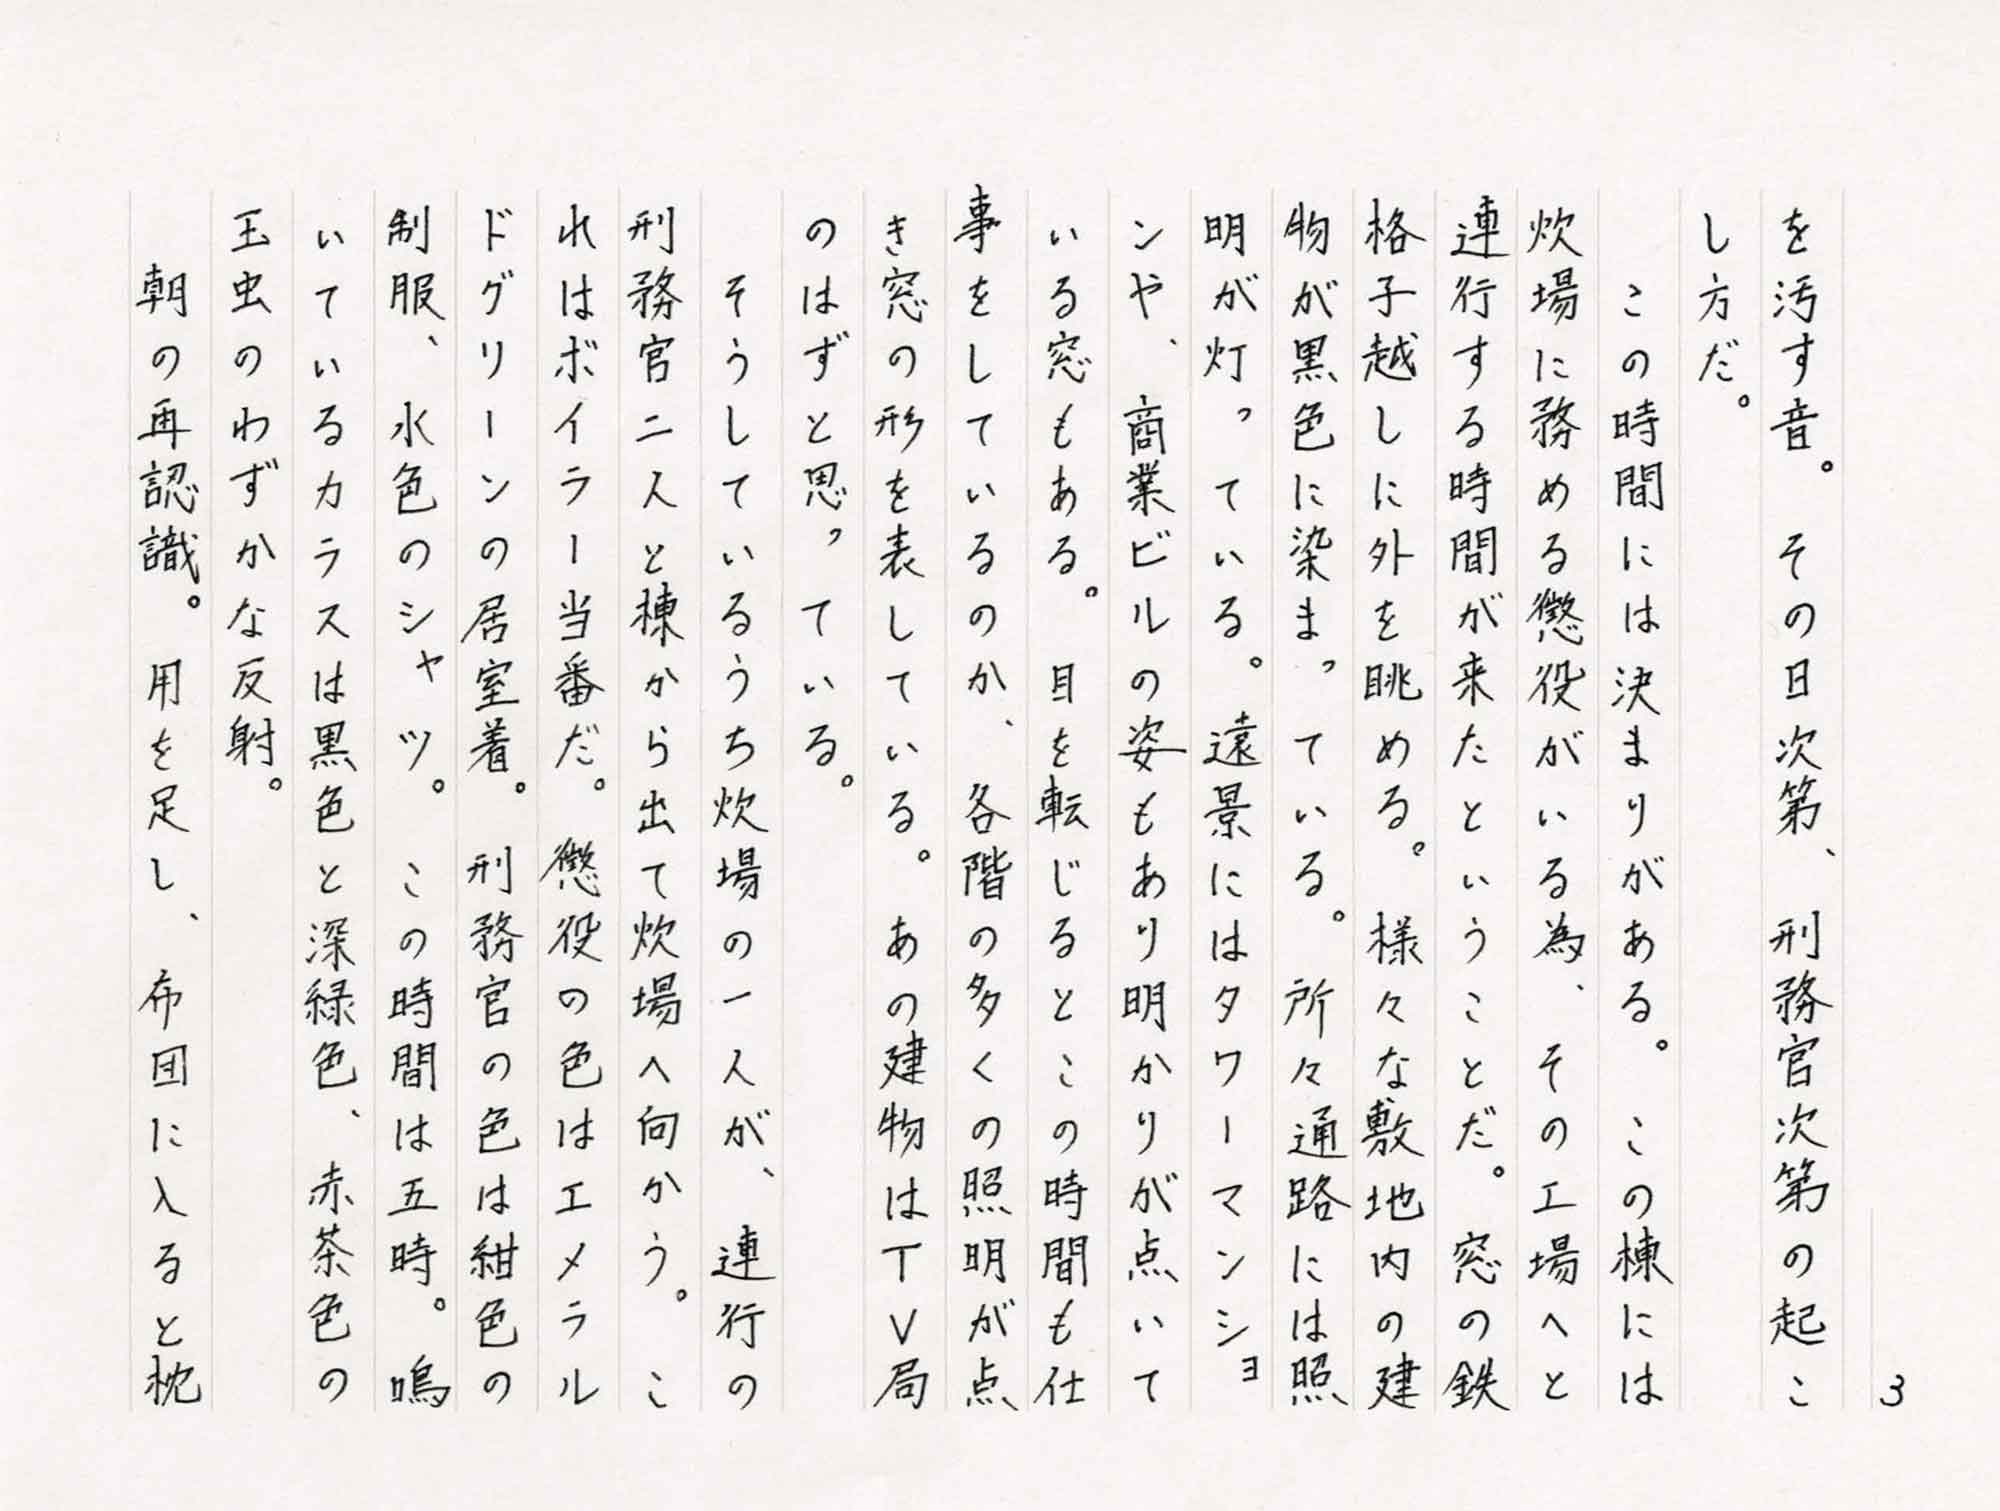 3
を汚す音。その日次第、刑務官次第の起こ
し方だ。
この時間には決まりがある。この棟には
炊場に務める懲役がいる為、その工場へと
連行する時間が来たということだ。窓の鉄
格子越しに外を眺める。様々な敷地内の建
物が黒色に染まっている。所々通路には照
明が灯っている。遠景にはタワーマンショ
ンや、商業ビルの姿もあり明かりが点いて
いる窓もある。目を転じるとこの時間も仕
事をしているのか、各階の多くの照明が点
き窓の形を表している。あの建物はTV局
のはずと思っている。
そうしているうち炊場の一人が、連行の
刑務官二人と棟から出て炊場へ向かう。こ
れはボイラー当番だ。懲役の色はエメラル
ドグリーンの居室着。刑務官の色は紺色の
制服、水色のシャツ。この時間は五時。鳴
いているカラスは黒色と深緑色、赤茶色の
玉虫のわずかな反射。
朝の再認識。用を足し、布団に入ると枕